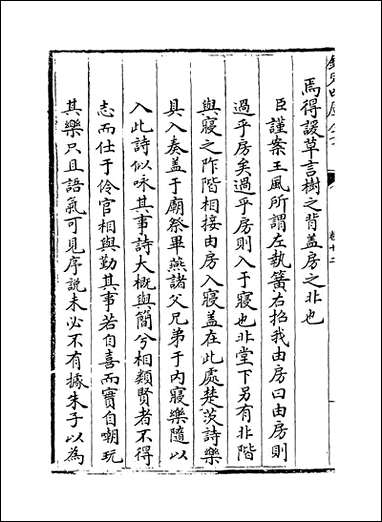 焉得諼草言樹之背盖房之北也
臣謹案王風所謂左執簧右招我由房曰由房則
過乎房矣過乎房則入于寢也非堂下另有北階
與寢之阼階相接由房入寢盖在此處楚茨詩樂
具入奏盖于廟祭畢燕諸父兄弟于内寢樂隨以
入此詩似咏其事詩大概與簡兮相類賢者不得
志而仕于伶官相與勤其事若自喜而實自嘲玩
其樂只且語氣可見序說未必不有據朱子以為